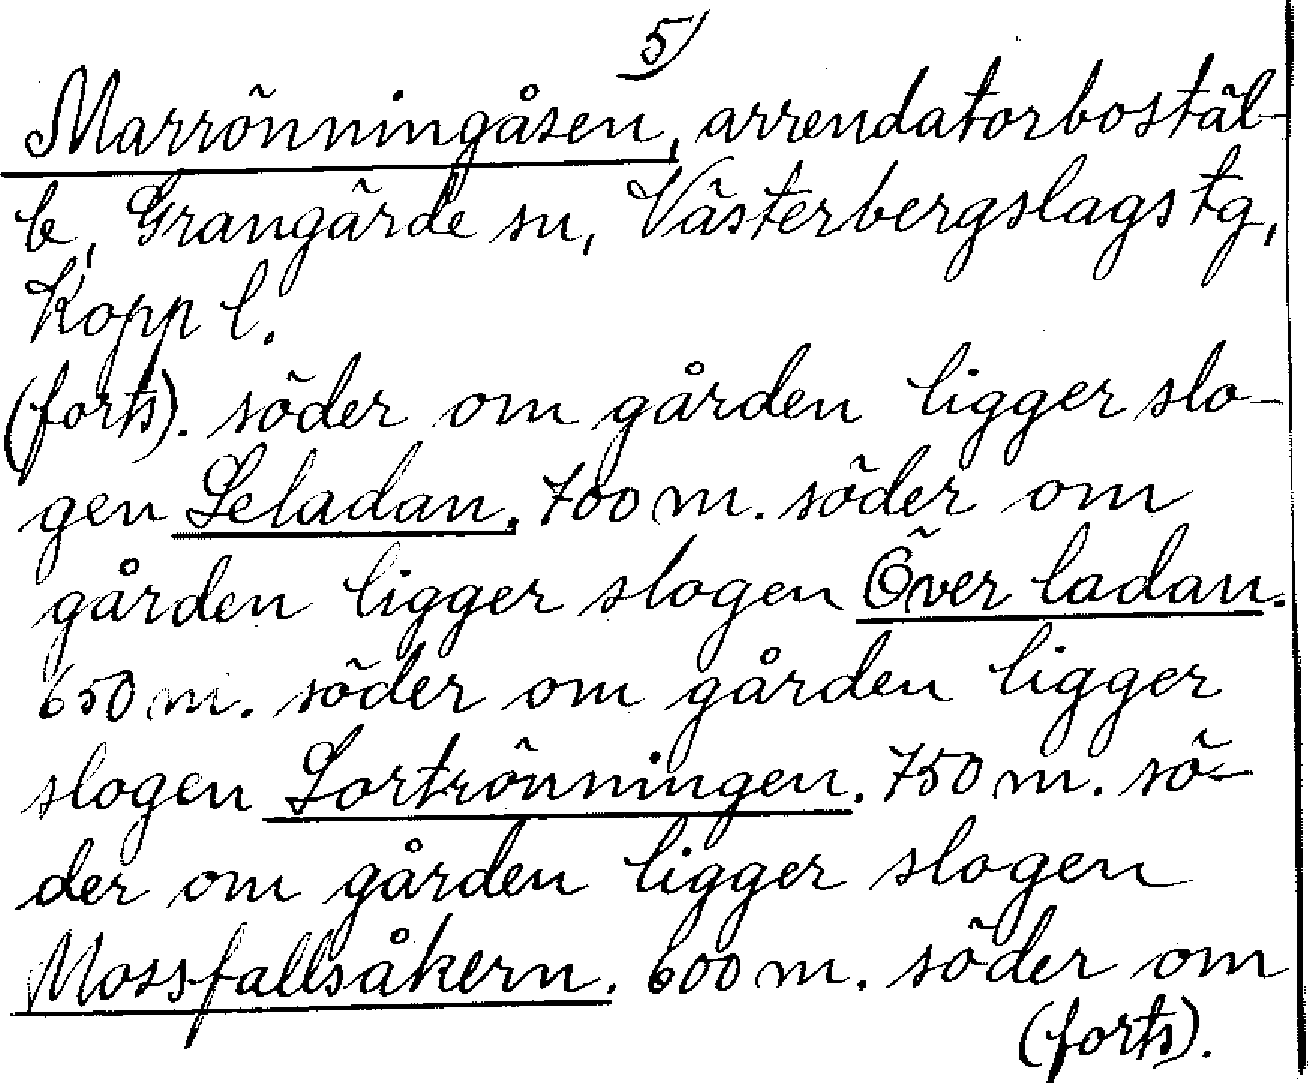 5/
Marrönningåsen, arrendatorbostäl-
le, Grangärde sn, Västerbergslags tg,
Kopp l.
(forts). söder om gården ligger slo-
gen Leladan. 700 m. söder om
gården ligger slogen Över ladan.
650 m. söder om gården ligger
slogen Lortrönningen. 750 m. sö-
der om gården ligger slogen
Mossfallsåkern. 600 m. söder om
(forts).